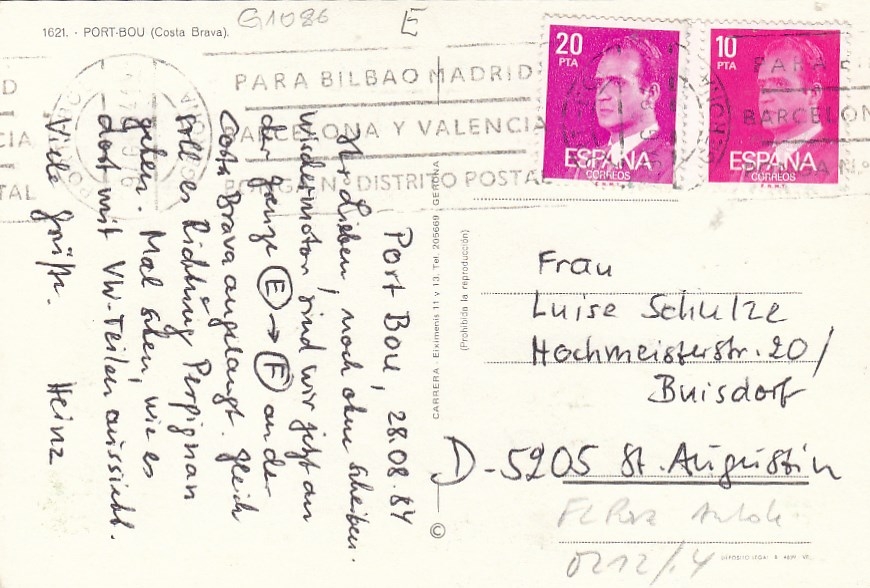 1621. - PORT-BOU (Costa Brava).
G1086
E
PARA BILBAO MADRID
BARCELONA Y VALENCIA
DISTRITO POSTAL
20
PTA
ESPAÑA
CORREOS
F.N.M.T.
10
PTA
ESPAÑA
CORREOS
F.N.M.T.
Port Bou, 28.08.84
Ihr Lieben, noch ohne Scheiben-
wischermotor sind wir jetzt an
der Grenze E → F an der
Costa Brava angelangt. Gleich
soll es Richtung Perpignan
gehen. Mal sehen, wie es
dort mit VW-Teilen aussieht.
Viele Grüße. Heinz
CARRERA - Eiximenis 11 y 13. Tel. 205669 - GERONA
(Prohibida la reproducción)
©
Frau
Luise Schulze
Hochmeisterstr. 20/
Buisdorf
D-5205 St. Augustin
DEPOSITO LEGAL B.